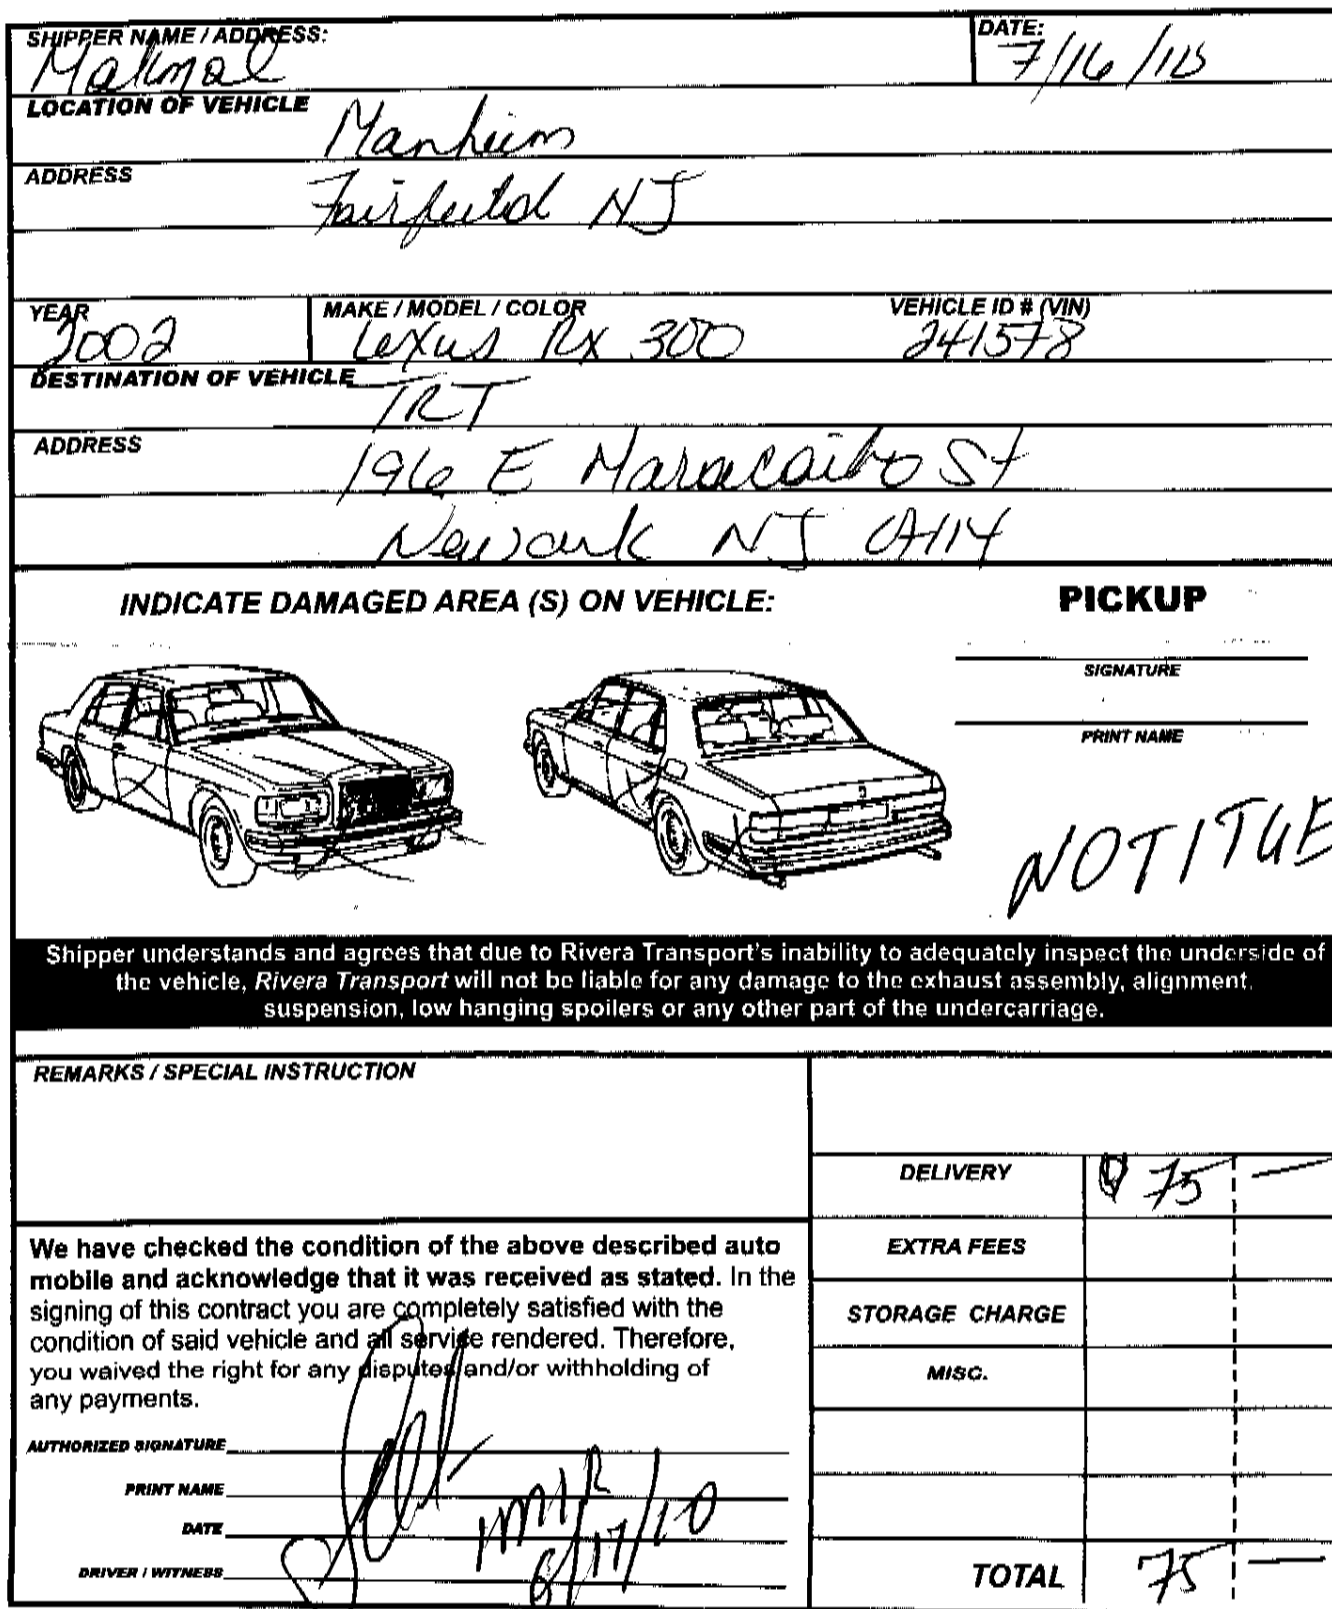 SHIPPER NAME / ADDRESS:
DATE:
Makmal
7/16/10
LOCATION OF VEHICLE
Manheim
ADDRESS
Fairfeild NJ
YEAR
MAKE / MODEL / COLOR
VEHICLE ID # (VIN)
2002
Lexus RX 300
241578
DESTINATION OF VEHICLE
TRT
ADDRESS
196 E Maracaibo St
Newark NJ 07114
INDICATE DAMAGED AREA (S) ON VEHICLE:
PICKUP
SIGNATURE
PRINT NAME
NOTITLE
Shipper understands and agrees that due to Rivera Transport's inability to adequately inspect the underside of
the vehicle, Rivera Transport will not be liable for any damage to the exhaust assembly, alignment,
suspension, low hanging spoilers or any other part of the undercarriage.
REMARKS / SPECIAL INSTRUCTION
DELIVERY 75 —
We have checked the condition of the above described auto
mobile and acknowledge that it was received as stated. In the
signing of this contract you are completely satisfied with the
condition of said vehicle and all service rendered. Therefore,
you waived the right for any disputes and/or withholding of
any payments.
EXTRA FEES
STORAGE CHARGE
MISC.
AUTHORIZED SIGNATURE
PRINT NAME
DATE 6/17/10
DRIVER / WITNESS
TOTAL 75 —